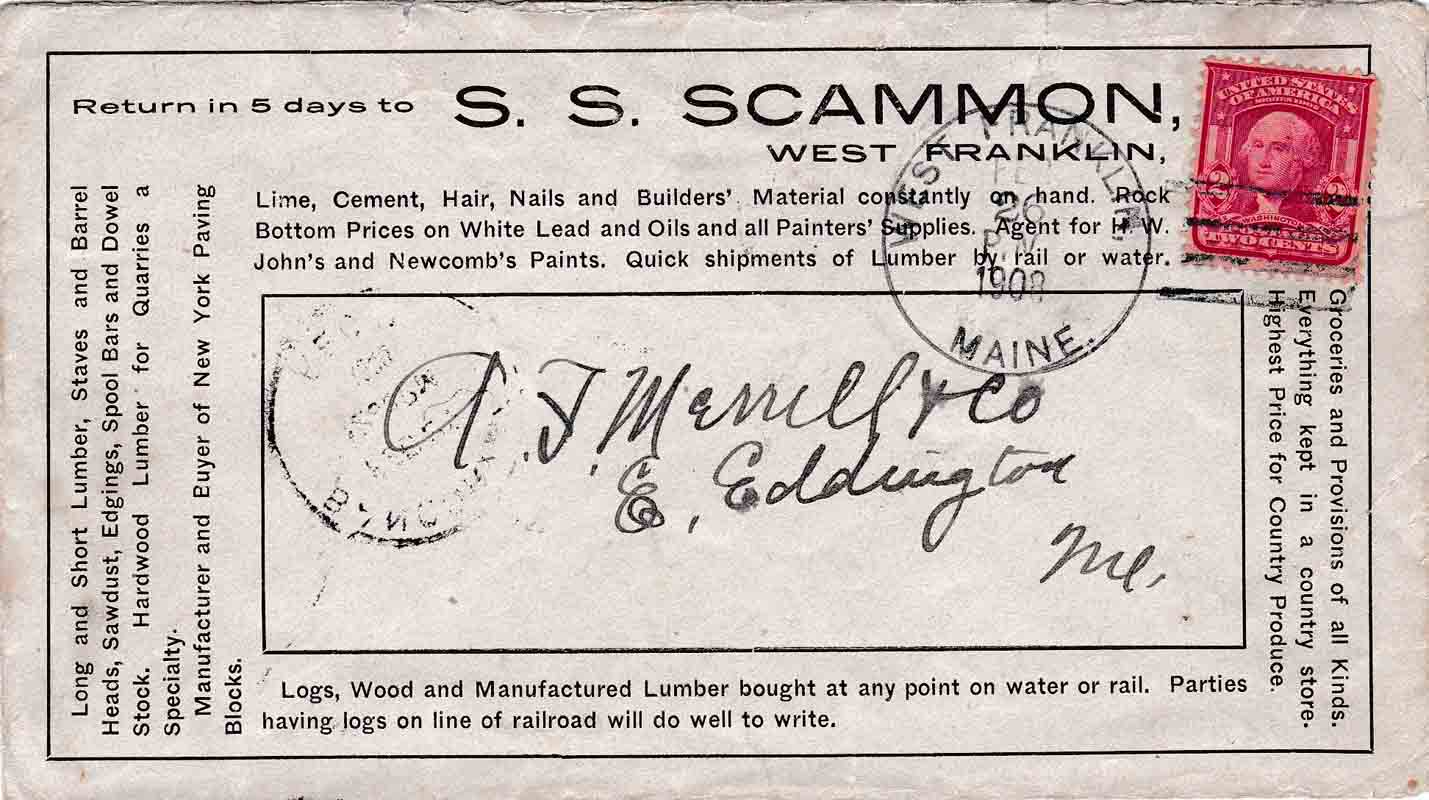 Return in 5 days to S. S. SCAMMON,
WEST FRANKLIN,
Lime, Cement, Hair, Nails and Builders' Material constantly on hand. Rock
Bottom Prices on White Lead and Oils and all Painters' Supplies. Agent for H. W.
John's and Newcomb's Paints. Quick shipments of Lumber by rail or water.
UNITED STATES
OF AMERICA
2 2
WASHINGTON
TWO CENTS
WEST FRANKLIN
26
1908
MAINE.
Long and Short Lumber, Staves and Barrel
Heads, Sawdust, Edgings, Spool Bars and Dowel
Stock. Hardwood Lumber for Quarries a
Specialty.
Manufacturer and Buyer of New York Paving
Blocks.
A. J. Merrill & Co
E. Eddington
Me.
Groceries and Provisions of all Kinds.
Everything kept in a country store.
Highest Price for Country Produce.
Logs, Wood and Manufactured Lumber bought at any point on water or rail. Parties
having logs on line of railroad will do well to write.